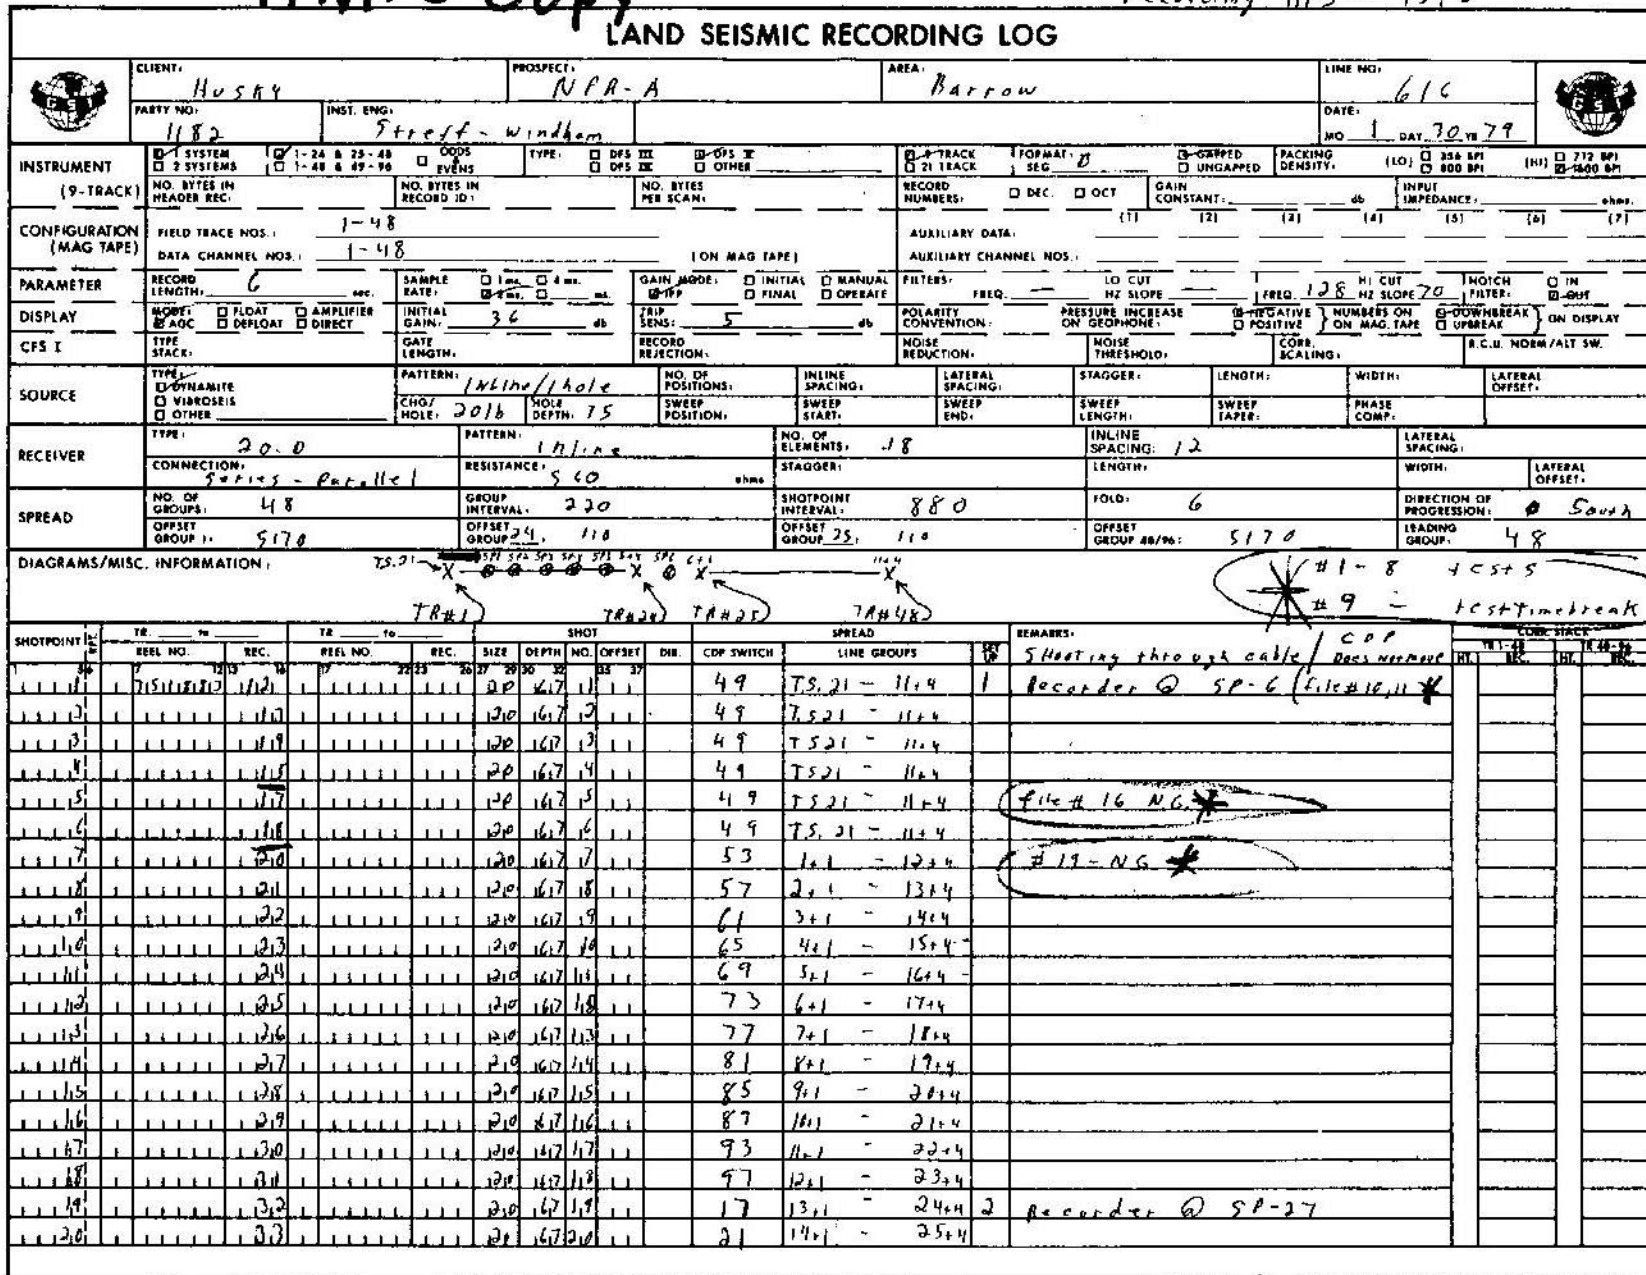 Copy
LAND SEISMIC RECORDING LOG
CLIENT: Husky PROSPECT: NPR-A AREA: Barrow LINE NO: 616
GSI GSI
PARTY NO: 1182 INST. ENG: Streff - Windham DATE: MO 1 DAY 30 YR 79
INSTRUMENT 1 SYSTEM 1-24 & 25-48 ODDS & EVENS TYPE: DFS III DFS V 9 TRACK FORMAT: SEG B GAPPED PACKING DENSITY: (LO) 356 BPI (HI) 712 BPI
2 SYSTEMS 1-48 & 49-96 DFS IV OTHER 21 TRACK UNGAPPED 800 BPI 1600 BPI
(9-TRACK) NO. BYTES IN HEADER REC: NO. BYTES IN RECORD ID: NO. BYTES PER SCAN: RECORD NUMBERS: DEC. OCT GAIN CONSTANT: db INPUT IMPEDANCE: ohms.
(1) (2) (3) (4) (5) (6) (7)
CONFIGURATION (MAG TAPE) FIELD TRACE NOS.: 1-48 AUXILIARY DATA:
DATA CHANNEL NOS.: 1-48 (ON MAG TAPE) AUXILIARY CHANNEL NOS.:
PARAMETER RECORD LENGTH: 6 sec. SAMPLE RATE: 1 ms. 4 ms. 2 ms. ms. GAIN MODE: INITIAL MANUAL IFP FINAL OPERATE FILTERS: LO CUT FREQ. — HZ SLOPE — HI CUT FREQ. 128 HZ SLOPE 70 NOTCH FILTER: IN OUT
DISPLAY MODE: FLOAT AMPLIFIER AGC DEFLOAT DIRECT INITIAL GAIN: 36 db TRIP SENS: 5 db POLARITY CONVENTION: PRESSURE INCREASE ON GEOPHONE: NEGATIVE POSITIVE NUMBERS ON MAG. TAPE DOWNBREAK UPBREAK ON DISPLAY
CFS I TYPE STACK: GATE LENGTH: RECORD REJECTION: NOISE REDUCTION: NOISE THRESHOLD: CORR. SCALING: R.C.U. NORM/ALT SW.
SOURCE TYPE: DYNAMITE VIBROSEIS OTHER PATTERN: Inline/1hole NO. OF POSITIONS: INLINE SPACING: LATERAL SPACING: STAGGER: LENGTH: WIDTH: LATERAL OFFSET:
CHG/HOLE: 20lb HOLE DEPTH: 75 SWEEP POSITION: SWEEP START: SWEEP END: SWEEP LENGTH: SWEEP TAPER: PHASE COMP:
RECEIVER TYPE: 20.0 PATTERN: Inline NO. OF ELEMENTS: 18 INLINE SPACING: 12 LATERAL SPACING:
CONNECTION: Series - Parallel RESISTANCE: 560 ohms STAGGER: LENGTH: WIDTH: LATERAL OFFSET:
SPREAD NO. OF GROUPS: 48 GROUP INTERVAL: 220 SHOTPOINT INTERVAL: 880 FOLD: 6 DIRECTION OF PROGRESSION: South
OFFSET GROUP 1: 5170 OFFSET GROUP 24: 110 OFFSET GROUP 25: 110 OFFSET GROUP 48/96: 5170 LEADING GROUP: 48
DIAGRAMS/MISC. INFORMATION: TS.21 11+4 #1-8 tests
TR#1 TR#24 TR#25 TR#48 #9 - test timebreak
SHOTPOINT TR. to TR. to SHOT SPREAD REMARKS: COMP. STACK
REEL NO. REC. REEL NO. REC. SIZE DEPTH NO. OFFSET DIR. CDP SWITCH LINE GROUPS SET UP Shooting through cable/ CDP Does not move TR 1-48 TR 49-96 HT. REC. HT. REC.
1 12 20 67 1 49 TS.21 - 11+4 1 Recorder @ SP-6 (file#10,11
2 13 20 67 2 49 T.S21 - 11+4
3 14 20 67 3 49 TS21 - 11+4
4 15 20 67 4 49 TS21 - 11+4
5 17 20 67 5 49 TS21 - 11+4 file # 16 N.G.
6 18 20 67 6 49 T.S.21 - 11+4
7 20 20 67 7 53 1+1 - 12+4 #19 - NG
8 21 20 67 8 57 2+1 - 13+4
9 22 20 67 9 61 3+1 - 14+4
10 23 20 67 10 65 4+1 - 15+4
11 24 20 67 11 69 5+1 - 16+4
12 25 20 67 12 73 6+1 - 17+4
13 26 20 67 13 77 7+1 - 18+4
14 27 20 67 14 81 8+1 - 19+4
15 28 20 67 15 85 9+1 - 20+4
16 29 20 67 16 87 10+1 - 21+4
17 30 20 67 17 93 11+1 - 22+4
18 31 20 67 18 97 12+1 - 23+4
19 32 20 67 19 17 13+1 - 24+4 2 Recorder @ SP-27
20 33 20 67 20 21 14+1 - 25+4